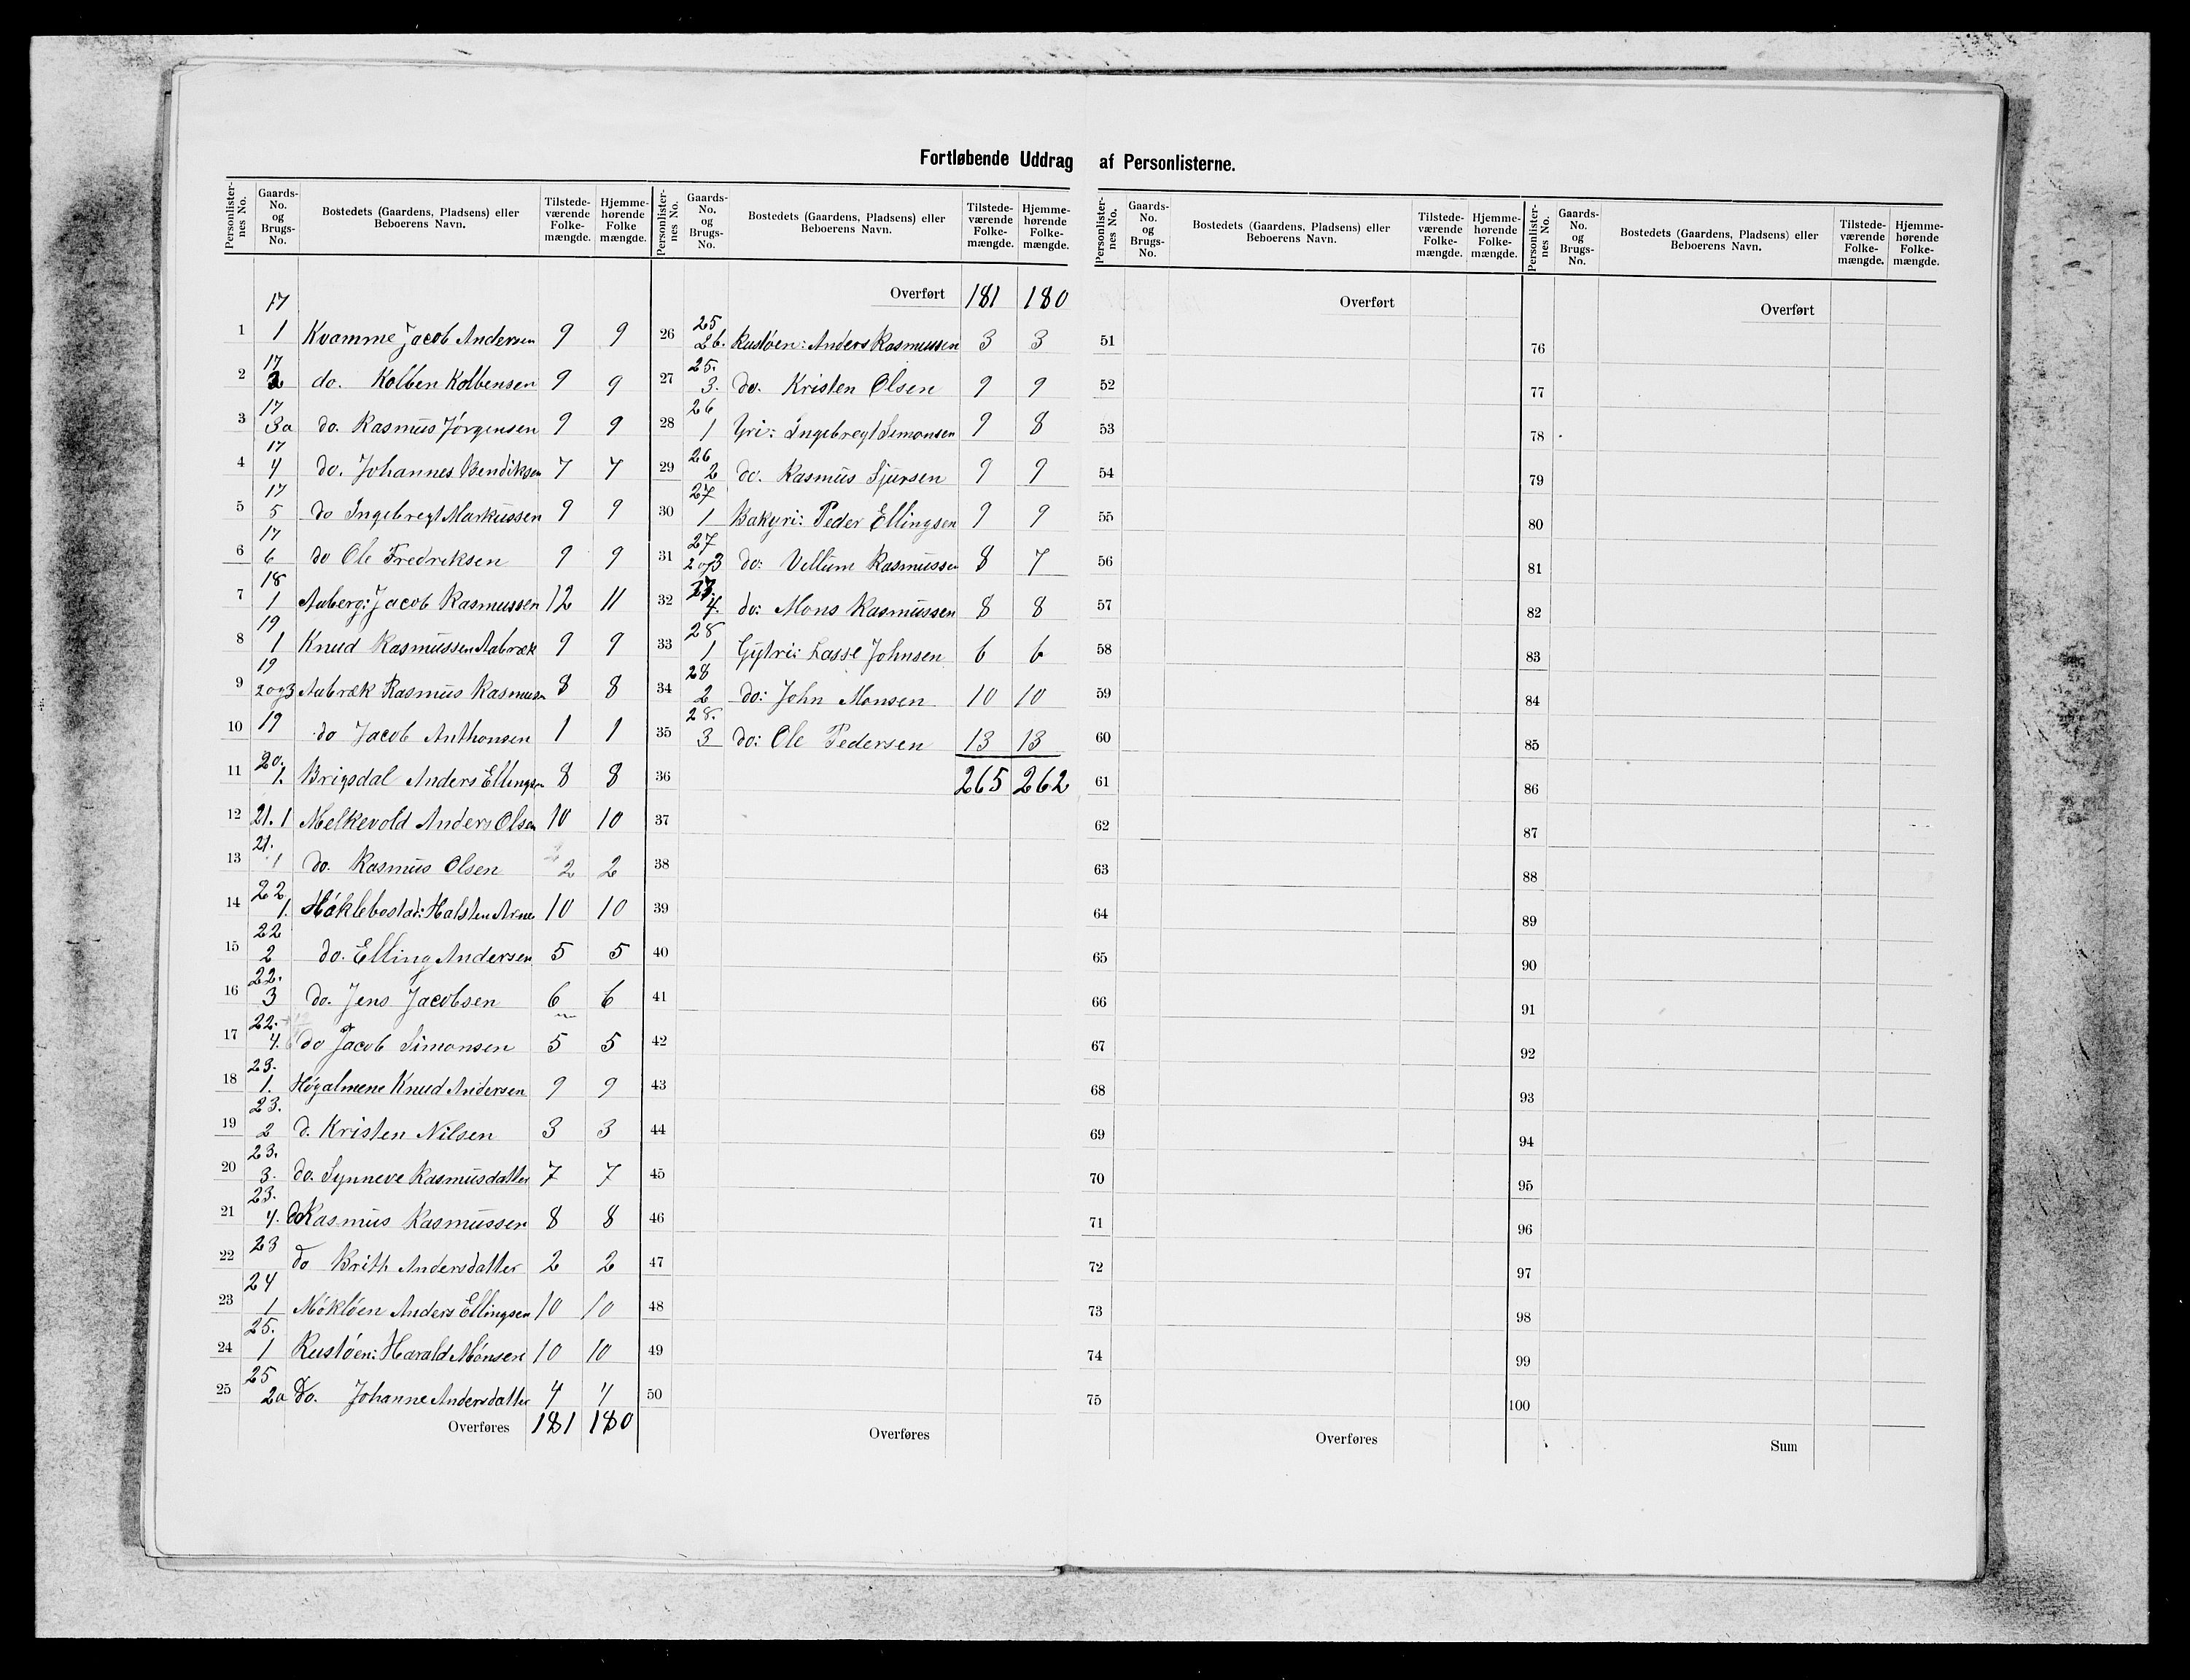 Fortløbende Uddrag af Personlisterne.
Personlister-nes No. | Gaards-No. og Brugs-No. | Bostedets (Gaardens, Pladsens) eller Beboerens Navn. | Tilstede-værende Folke-mængde. | Hjemme-hørende Folke mængde.
1 | 17 1 | Kvamme Jacob Andersen | 9 | 9
2 | 17 2 | do. Kolben Kolbensen | 9 | 9
3 | 17 3a | do. Rasmus Jørgensen | 9 | 9
4 | 17 4 | do. Johannes Bendiksen | 7 | 7
5 | 17 5 | do Ingebregt Markussen | 9 | 9
6 | 17 6 | do Ole Fredriksen | 9 | 9
7 | 18 1 | Aaberg: Jacob Rasmussen | 12 | 11
8 | 19 1 | Knud Rasmussen Aabræk | 9 | 9
9 | 19 2og3 | Aabræk Rasmus Rasmusn | 8 | 8
10 | 19 | do Jacob Anthonsen | 1 | 1
11 | 20. 1. | Brigsdal Anders Ellingsn | 8 | 8
12 | 21. 1 | Melkevold Anders Olsen | 10 | 10
13 | 21. 1 | do. Rasmus Olsen | 2 | 2
14 | 22 1. | Høklebostad: Halsten Arne | 10 | 10
15 | 22 2 | do. Elling Andersen | 5 | 5
16 | 22. 3 | do. Jens Jacobsen | 6 | 6
17 | 22. 4. | do Jacob Simonsen | 5 | 5
18 | 23. 1. | Høgalmene Knud Andersen | 9 | 9
19 | 23. 2 | d. Kristen Nilsen | 3 | 3
20 | 23. 3. | do. Synneve Rasmusdatter | 7 | 7
21 | 23. 4. | do Rasmus Rasmussen | 8 | 8
22 | 23 | do Brith Andersdatter | 2 | 2
23 | 24 1 | Møkløen Anders Ellingsen | 10 | 10
24 | 25. 1 | Rustøen: Harald Monsen | 10 | 10
25 | 25 2a | Do. Johanne Andersdatter | 4 | 4
Overføres | 181 | 180
Personlister-nes No. | Gaards-No. og Brugs-No. | Bostedets (Gaardens, Pladsens) eller Beboerens Navn. | Tilstede-værende Folke-mængde. | Hjemme-hørende Folke-mængde.
Overført | 181 | 180
26 | 25 2b. | Rustøen: Anders Rasmussen | 3 | 3
27 | 25. 3. | do. Kristen Olsen | 9 | 9
28 | 26 1 | Yri: Ingebregt Simonsen | 9 | 8
29 | 26 2 | do. Rasmus Sjursen | 9 | 9
30 | 27 1 | Bakyri: Peder Ellingsen | 9 | 9
31 | 27 2og3 | do: Vellum Rasmussen | 8 | 7
32 | 27. 4. | do: Mons Rasmussen | 8 | 8
33 | 28 1 | Gytri: Lasse Johnsen | 6 | 6
34 | 28 2 | do: John Monsen | 10 | 10
35 | 28. 3 | do: Ole Pedersen | 13 | 13
36 | 265 | 262
37
38
39
40
41
42
43
44
45
46
47
48
49
50
Overføres
Personlister-nes No. | Gaards-No. og Brugs-No. | Bostedets (Gaardens, Pladsens) eller Beboerens Navn. | Tilstede-værende Folke-mængde. | Hjemme-hørende Folke-mængde.
Overført
51
52
53
54
55
56
57
58
59
60
61
62
63
64
65
66
67
68
69
70
71
72
73
74
75
Overføres
Personlister-nes No. | Gaards-No. og Brugs-No. | Bostedets (Gaardens, Pladsens) eller Beboerens Navn. | Tilstede-værende Folke-mængde. | Hjemme-hørende Folke-mængde.
Overført
76
77
78
79
80
81
82
83
84
85
86
87
88
89
90
91
92
93
94
95
96
97
98
99
100
Sum